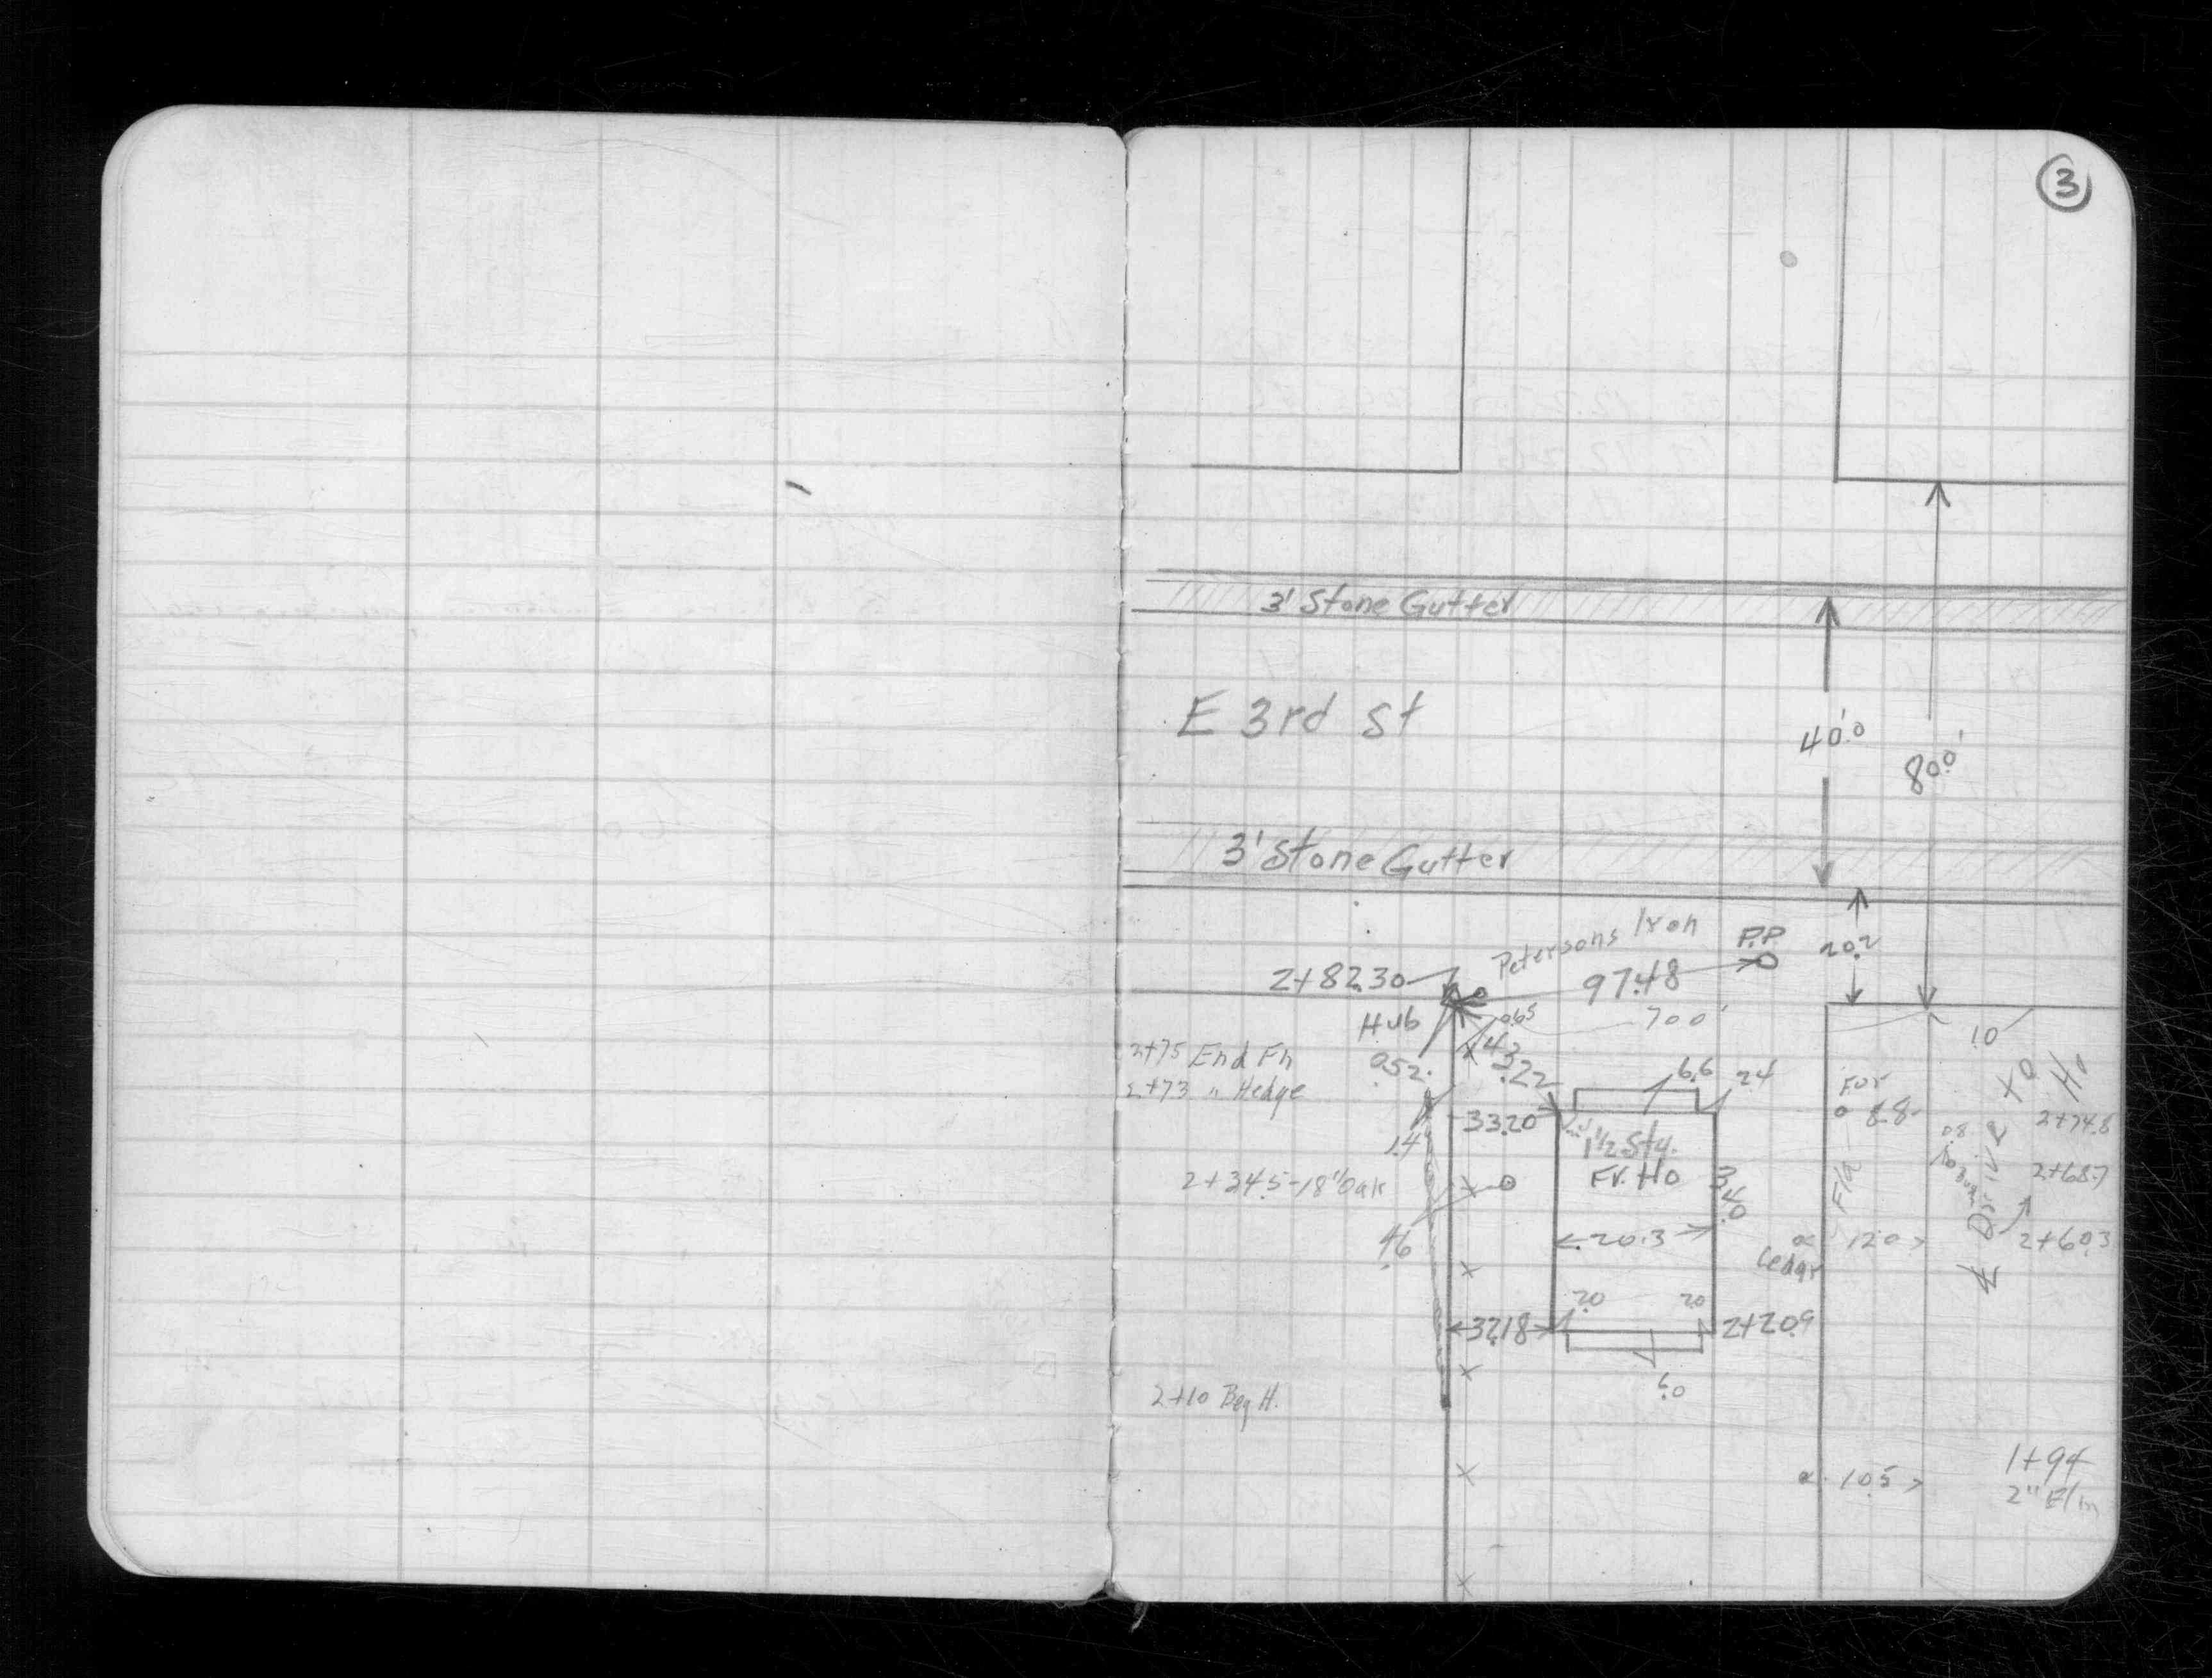 3
3' Stone Gutter
E 3rd St
40.0'
80.0'
3' Stone Gutter
Petersons Iron
P.P
20.2
2+82.30
97.48
Hub
0.65
70.0'
10
2+75 End Fn
0.52
43.22
2+73 " Hedge
6.6
2.4
Fur
8.8
2+74.8
33.20
1.4
1 1/2 Sty.
Fr. Ho
34.0
0.8
2+68.7
2+34.5-18" Oak
Drive to Ho
.46
20.3
Cedar
12.0
2+60.3
2.0
2.0
32.18
2+20.9
6.0
2+10 Beg H.
10.5
1+94
2" Elm